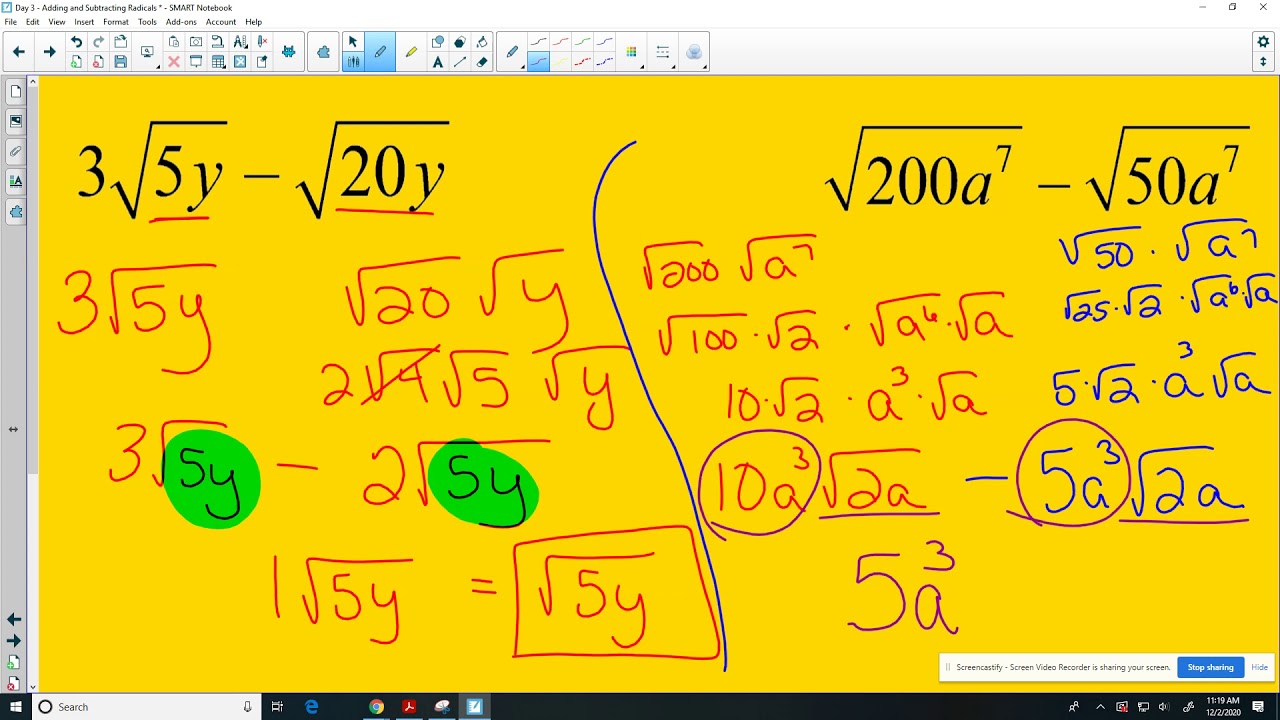 Day 3 - Adding and Subtracting Radicals * - SMART Notebook
File Edit View Insert Format Tools Add-ons Account Help
3√5y − √20y
3√5y √20 √y
2√4 √5 √y
3√5y − 2√5y
1√5y = √5y
√200a⁷ − √50a⁷
√200 √a⁷
√100 · √2 · √a⁶ · √a
10 · √2 · a³ · √a
√50 · √a⁷
√25 · √2 · √a⁶ · √a
5 · √2 · a³ √a
10a³√2a − 5a³√2a
5a³
Screencastify - Screen Video Recorder is sharing your screen. Stop sharing Hide
Search
11:19 AM
12/2/2020